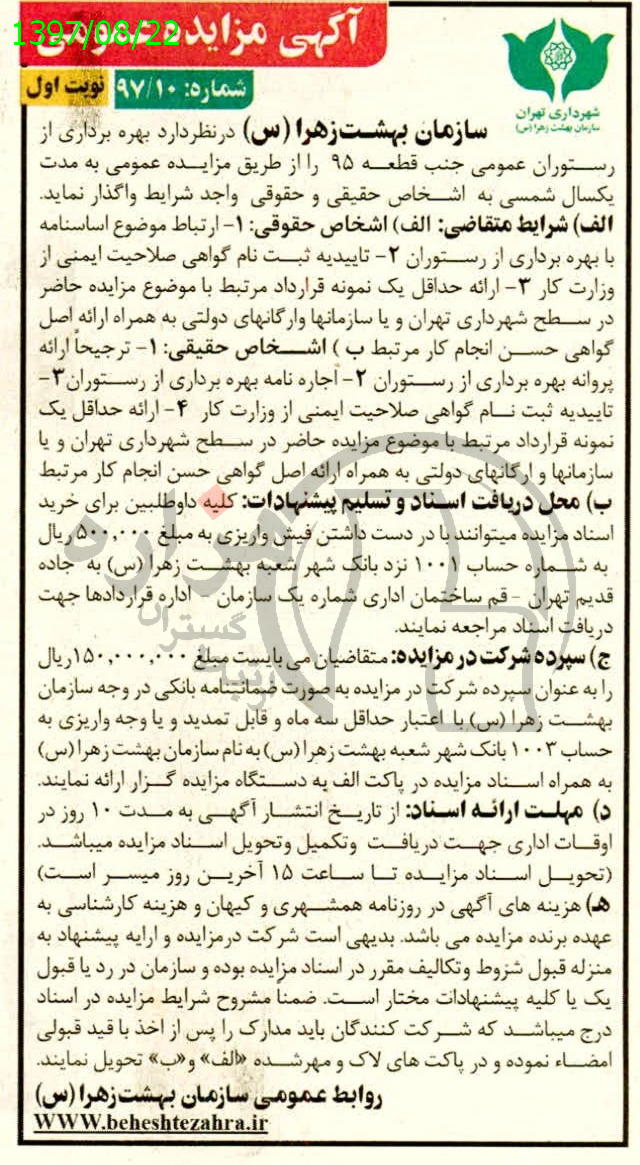 1397/08/22
آگهی مزایده عمومی
شهرداری تهران
سازمان بهشت زهرا (س)
شماره: ۹۷/۱۰ نوبت اول
سازمان بهشت‌زهرا (س) درنظردارد بهره برداری از
رستوران عمومی جنب قطعه ۹۵ را از طریق مزایده عمومی به مدت
یکسال شمسی به اشخاص حقیقی و حقوقی واجد شرایط واگذار نماید.
الف) شرایط متقاضی: الف) اشخاص حقوقی: ۱- ارتباط موضوع اساسنامه
با بهره برداری از رستوران ۲- تاییدیه ثبت نام گواهی صلاحیت ایمنی از
وزارت کار ۳- ارائه حداقل یک نمونه قرارداد مرتبط با موضوع مزایده حاضر
در سطح شهرداری تهران و یا سازمانها وارگانهای دولتی به همراه ارائه اصل
گواهی حسن انجام کار مرتبط ب ) اشخاص حقیقی: ۱- ترجیحاً ارائه
پروانه بهره برداری از رستوران ۲- اجاره نامه بهره برداری از رستوران۳-
تاییدیه ثبت نام گواهی صلاحیت ایمنی از وزارت کار ۴- ارائه حداقل یک
نمونه قرارداد مرتبط با موضوع مزایده حاضر در سطح شهرداری تهران و یا
سازمانها و ارگانهای دولتی به همراه ارائه اصل گواهی حسن انجام کار مرتبط
ب) محل دریافت اسناد و تسلیم پیشنهادات: کلیه داوطلبین برای خرید
اسناد مزایده میتوانند با در دست داشتن فیش واریزی به مبلغ ۵۰۰,۰۰۰ ریال
به شماره حساب ۱۰۰۱ نزد بانک شهر شعبه بهشت زهرا (س) به جاده
قدیم تهران - قم ساختمان اداری شماره یک سازمان - اداره قراردادها جهت
دریافت اسناد مراجعه نمایند.
ج) سپرده شرکت در مزایده: متقاضیان می بایست مبلغ ۱۵۰,۰۰۰,۰۰۰ریال
را به عنوان سپرده شرکت در مزایده به صورت ضمانتنامه بانکی در وجه سازمان
بهشت زهرا (س) با اعتبار حداقل سه ماه و قابل تمدید و یا وجه واریزی به
حساب ۱۰۰۳ بانک شهر شعبه بهشت زهرا (س) به نام سازمان بهشت زهرا (س)
به همراه اسناد مزایده در پاکت الف به دستگاه مزایده گزار ارائه نمایند.
د) مهلت ارائه اسناد: از تاریخ انتشار آگهی به مدت ۱۰ روز در
اوقات اداری جهت دریافت وتکمیل وتحویل اسناد مزایده میباشد.
(تحویل اسناد مزایده تا ساعت ۱۵ آخرین روز میسر است)
هـ) هزینه های آگهی در روزنامه همشهری و کیهان و هزینه کارشناسی به
عهده برنده مزایده می باشد. بدیهی است شرکت درمزایده و ارایه پیشنهاد به
منزله قبول شروط وتکالیف مقرر در اسناد مزایده بوده و سازمان در رد یا قبول
یک یا کلیه پیشنهادات مختار است. ضمنا مشروح شرایط مزایده در اسناد
درج میباشد که شرکت کنندگان باید مدارک را پس از اخذ با قید قبولی
امضاء نموده و در پاکت های لاک و مهرشده «الف» و«ب» تحویل نمایند.
روابط عمومی سازمان بهشت‌زهرا (س)
WWW.beheshtezahra.ir